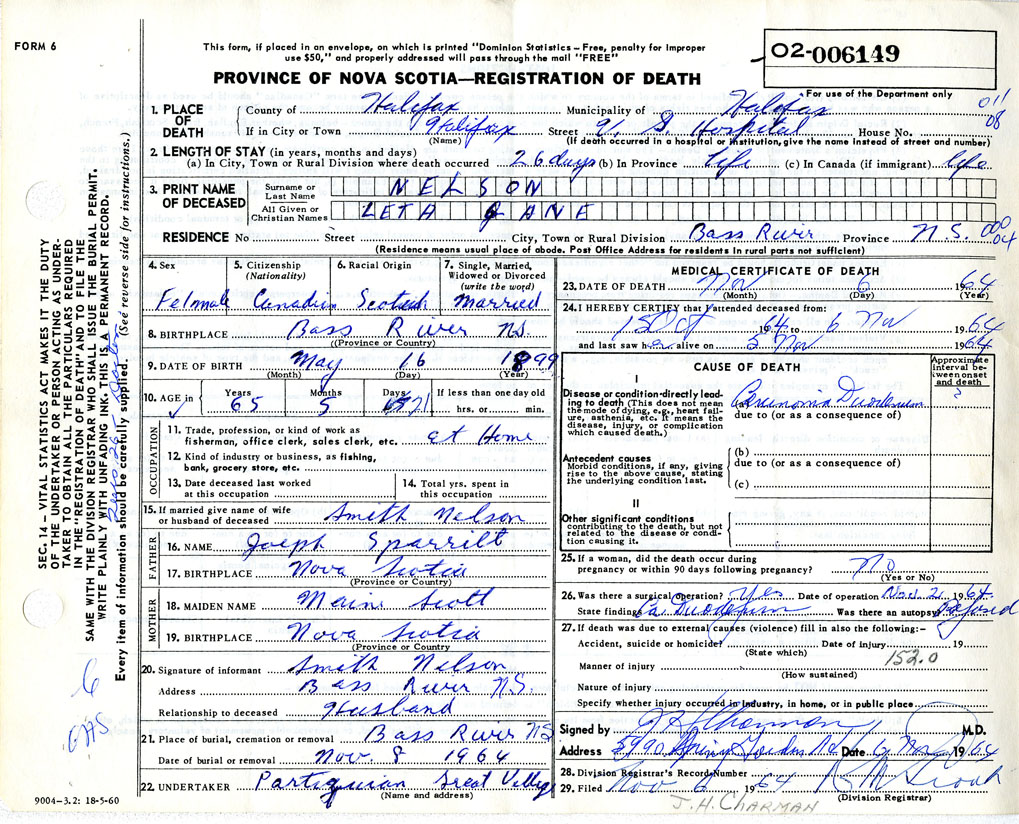 FORM 6
This form, if placed in an envelope, on which is printed "Dominion Statistics – Free, penalty for improper
use $50," and properly addressed will pass through the mail "FREE"
02-006149
PROVINCE OF NOVA SCOTIA—REGISTRATION OF DEATH
For use of the Department only
011
08
1. PLACE OF DEATH
County of Halifax Municipality of Halifax
If in City or Town Halifax Street V. G. Hospital House No.
(Name) (If death occurred in a hospital or institution, give the name instead of street and number)
2. LENGTH OF STAY (in years, months and days)
(a) In City, Town or Rural Division where death occurred 26 days (b) In Province Life (c) In Canada (if immigrant) life
3. PRINT NAME OF DECEASED
Surname or Last Name NELSON
All Given or Christian Names LETA JANE
RESIDENCE No Street City, Town or Rural Division Bass River Province N.S. 000
04
(Residence means usual place of abode. Post Office Address for residents in rural parts not sufficient)
4. Sex Felmale
5. Citizenship (Nationality) Canadin
6. Racial Origin Scotch
7. Single, Married, Widowed or Divorced (write the word) Married
8. BIRTHPLACE Bass River N.S.
(Province or Country)
9. DATE OF BIRTH May 16 1899
(Month) (Day) (Year)
10. AGE in Years 65 Months 5 Days 21 If less than one day old
hrs. or min.
OCCUPATION
11. Trade, profession, or kind of work as
fisherman, office clerk, sales clerk, etc. at Home
12. Kind of industry or business, as fishing,
bank, grocery store, etc.
13. Date deceased last worked
at this occupation
14. Total yrs. spent in
this occupation
15. If married give name of wife
or husband of deceased Smith Nelson
FATHER
16. NAME Joeph Sparrilt
17. BIRTHPLACE Nova Scotia
(Province or Country)
MOTHER
18. MAIDEN NAME Maine Scott
19. BIRTHPLACE Nova Scotia
(Province or Country)
20. Signature of informant Smith Nelson
Address Bass River N.S.
Relationship to deceased Husband
21. Place of burial, cremation or removal Bass River N.S.
Date of burial or removal Nov. 8 1964
22. UNDERTAKER Great Village
(Name and address)
9004-3.2: 18-5-60
MEDICAL CERTIFICATE OF DEATH
23. DATE OF DEATH Nov 6 1964
(Month) (Day) (Year)
24. I HEREBY CERTIFY that I attended deceased from:
1 Oct 1964 to 6 Nov 1964
and last saw h er alive on 5 Nov 1964
CAUSE OF DEATH
Approximate interval between onset and death
I
Disease or condition directly leading to death (This does not mean the mode of dying, e.g., heart failure, asthenia, etc. It means the disease, injury, or complication which caused death.)
Carcinoma Duodenum ?
due to (or as a consequence of)
Antecedent causes
Morbid conditions, if any, giving rise to the above cause, stating the underlying condition last.
(b)
due to (or as a consequence of)
(c)
II
Other significant conditions
contributing to the death, but not related to the disease or condition causing it.
25. If a woman, did the death occur during
pregnancy or within 90 days following pregnancy? No
(Yes or No)
26. Was there a surgical operation? Yes Date of operation Nov. 2 1964
State findings Ca Duodenum Was there an autopsy? Refused
27. If death was due to external causes (violence) fill in also the following:–
Accident, suicide or homicide? Date of injury 19
(State which) 152.0
Manner of injury
(How sustained)
Nature of injury
Specify whether injury occurred in industry, in home, or in public place
Signed by J H Charman M.D.
Address 5990 Spring Garden Rd Date 6 Nov 1964
28. Division Registrar's Record Number
29. Filed Nov 6 1964
(Division Registrar)
J. H. CHARMAN
SEC. 14 – VITAL STATISTICS ACT MAKES IT THE DUTY
OF THE UNDERTAKER OR PERSON ACTING AS UNDER-
TAKER TO OBTAIN ALL THE PARTICULARS REQUIRED
IN THE "REGISTRATION OF DEATH" AND TO FILE THE
SAME WITH THE DIVISION REGISTRAR WHO SHALL ISSUE THE BURIAL PERMIT.
WRITE PLAINLY WITH UNFADING INK. THIS IS A PERMANENT RECORD.
Every item of information should be carefully supplied. (See reverse side for instructions.)